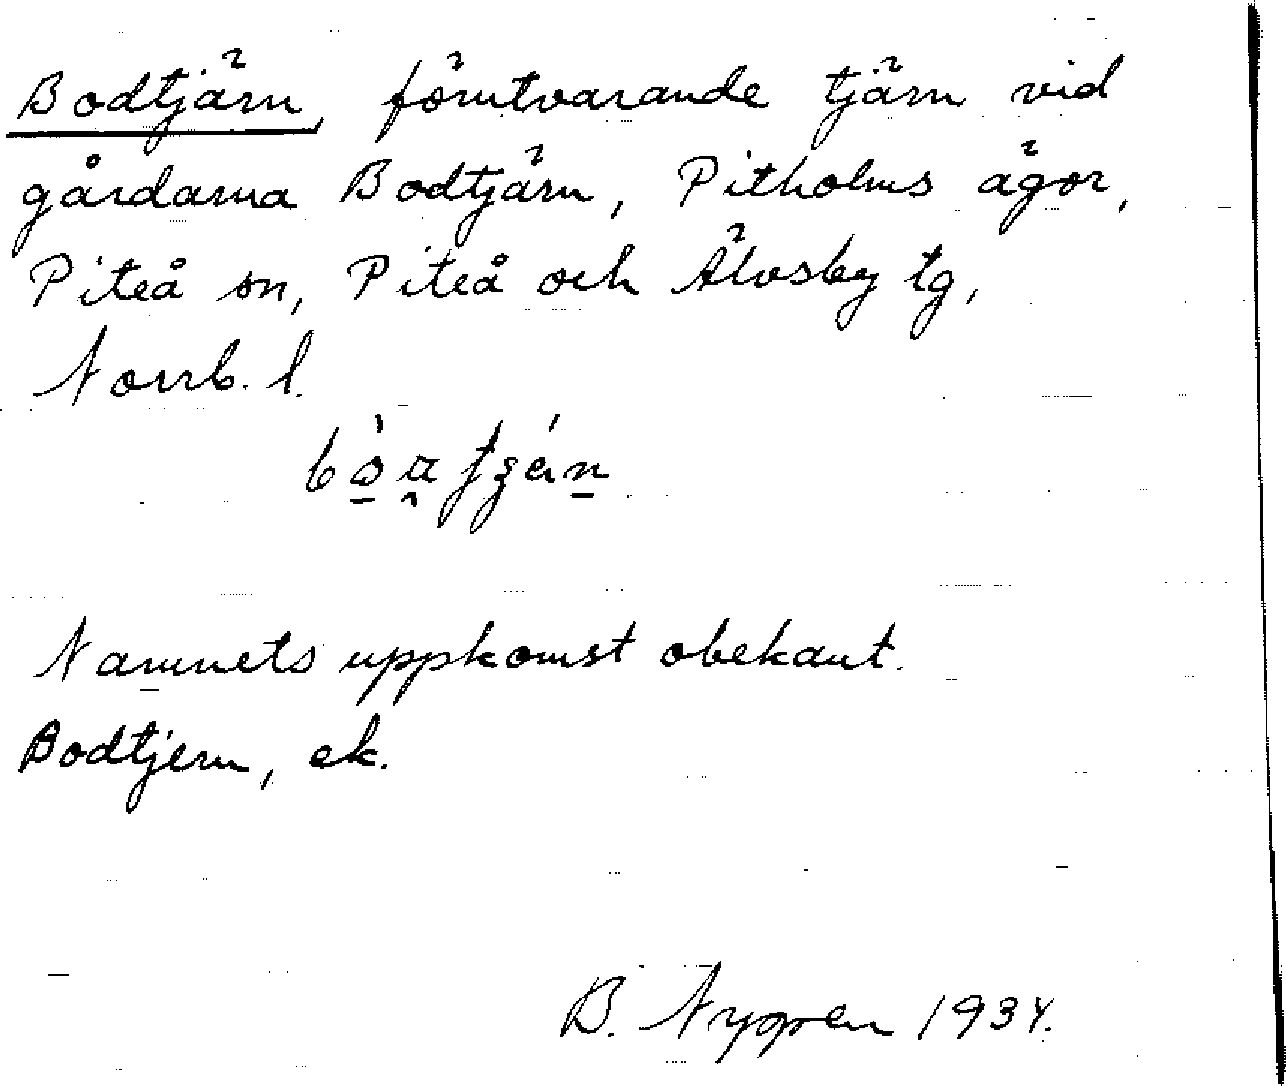 Bodtjärn, förutvarande tjärn vid
gårdarna Bodtjärn, Pitholms ägor,
Piteå sn, Piteå och Älvsby tg,
Norrb. l.
Namnets uppkomst obekant.
Bodtjern, ek.
B. Nygren 1934.